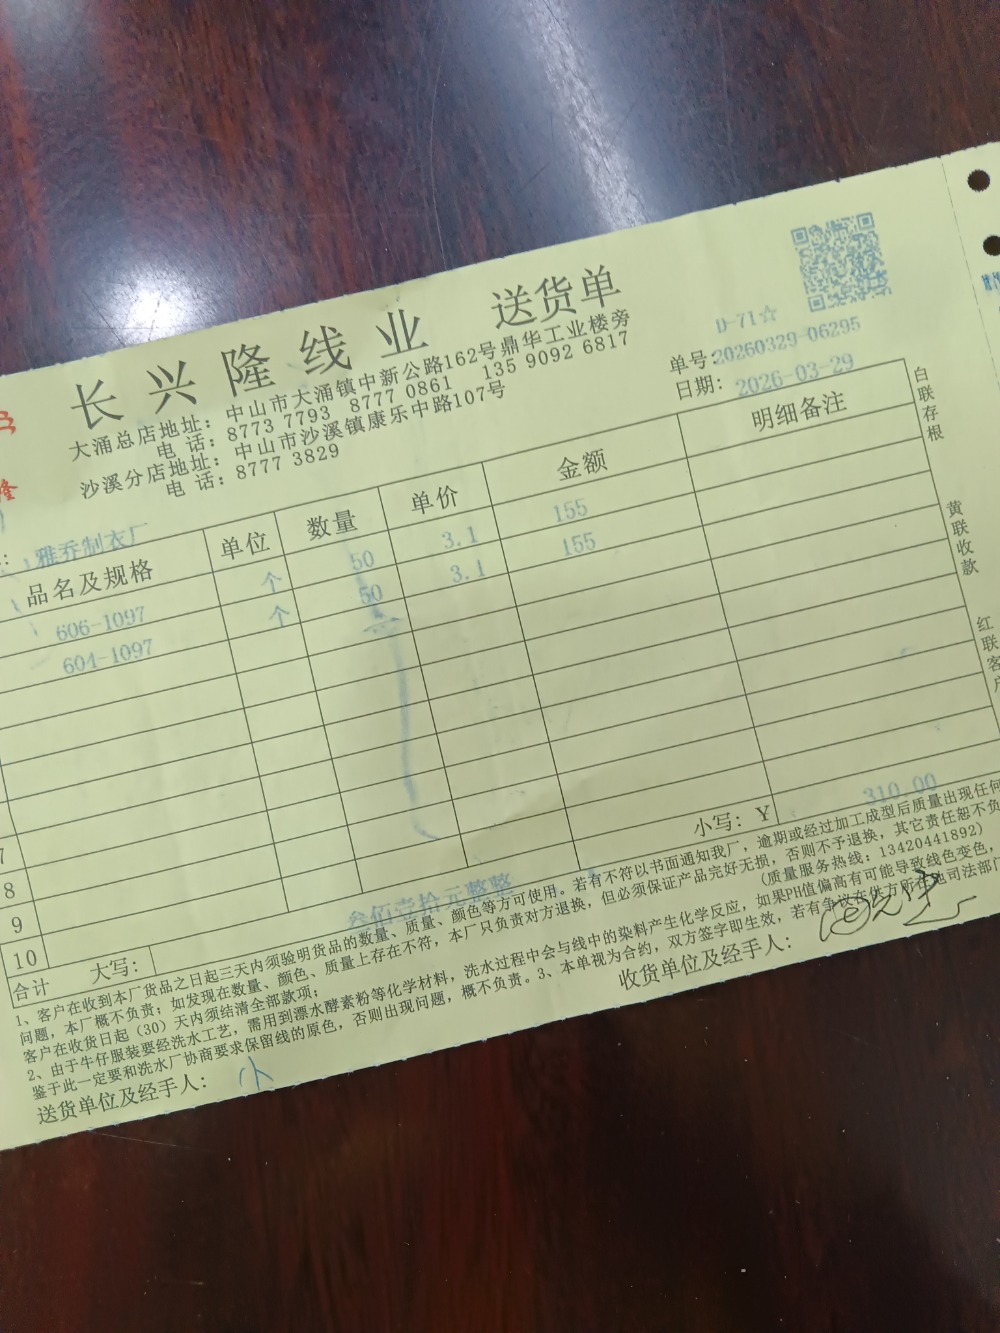 长兴隆线业 送货单
D-71☆
大涌总店地址：中山市大涌镇中新公路162号鼎华工业楼旁
电 话：8773 7793 8777 0861 135 9092 6817
沙溪分店地址：中山市沙溪镇康乐中路107号
电 话：8777 3829
单号：20260329-06295
日期：2026-03-29
雅乔制衣厂
品名及规格 单位 数量 单价 金额 明细备注
606-1097 个 50 3.1 155
604-1097 个 50 3.1 155
7
8
9
10
合计 大写： 叁佰壹拾元整整 小写：Y 310.00
1、客户在收到本厂货品之日起三天内须验明货品的数量、质量、颜色等方可使用。若有不符以书面通知我厂，逾期或经过加工成型后质量出现任何
问题，本厂概不负责；如发现在数量、颜色、质量上存在不符，本厂只负责对方退换，但必须保证产品完好无损，否则不予退换，其它责任恕不负
客户在收货日起（30）天内须结清全部款项； （质量服务热线：13420441892）
2、由于牛仔服装要经洗水工艺，需用到漂水酵素粉等化学材料，洗水过程中会与线中的染料产生化学反应，如果PH值偏高有可能导致线色变色，
鉴于此一定要和洗水厂协商要求保留线的原色，否则出现问题，概不负责。3、本单视为合约，双方签字即生效，若有争议在供方所在地司法部门
送货单位及经手人： 收货单位及经手人：
白联存根
黄联收款
红联客户
隆